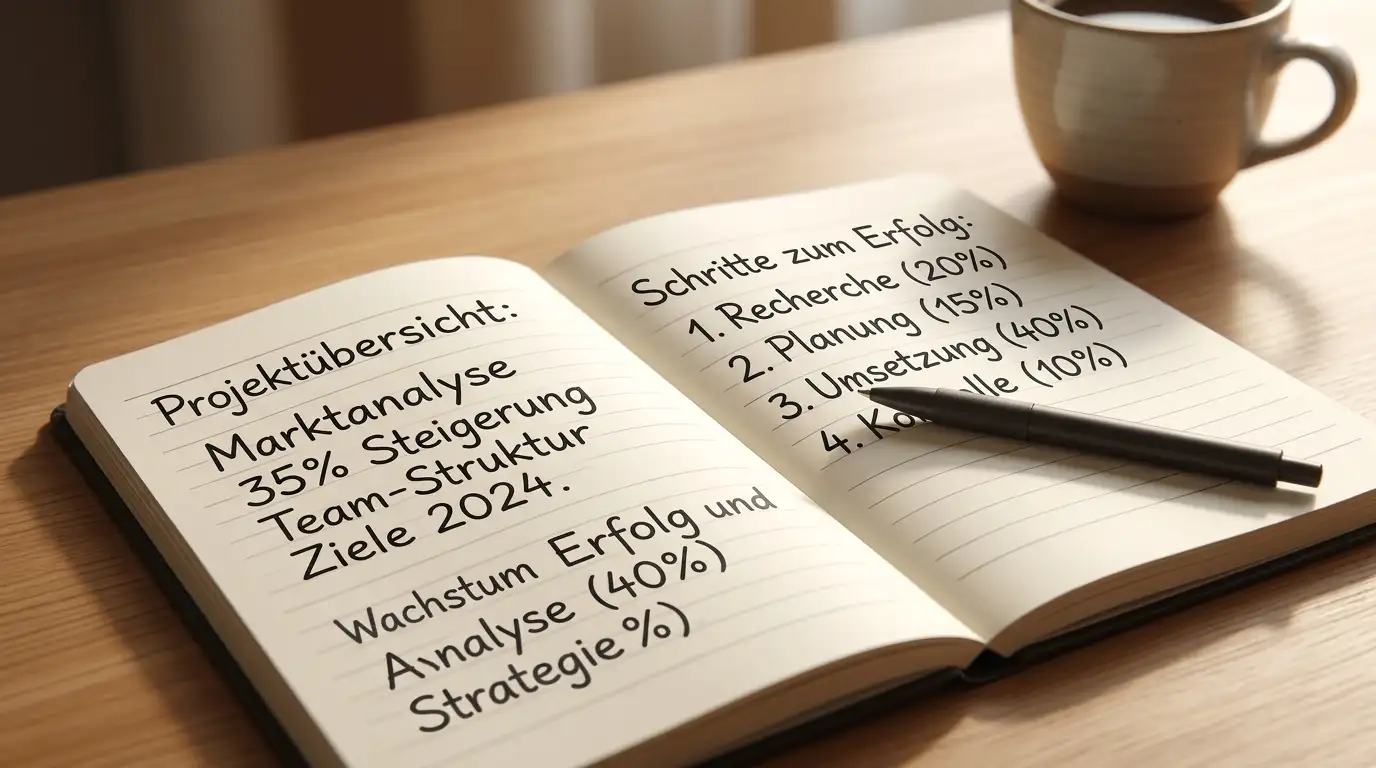 Projektübersicht:
Marktanalyse
35% Steigerung
Team-Struktur
Ziele 2024.
Wachstum Erfolg und
Analyse (40%)
Strategie %)
Schritte zum Erfolg:
1. Recherche (20%)
2. Planung (15%)
3. Umsetzung (40%)
4. (10%)